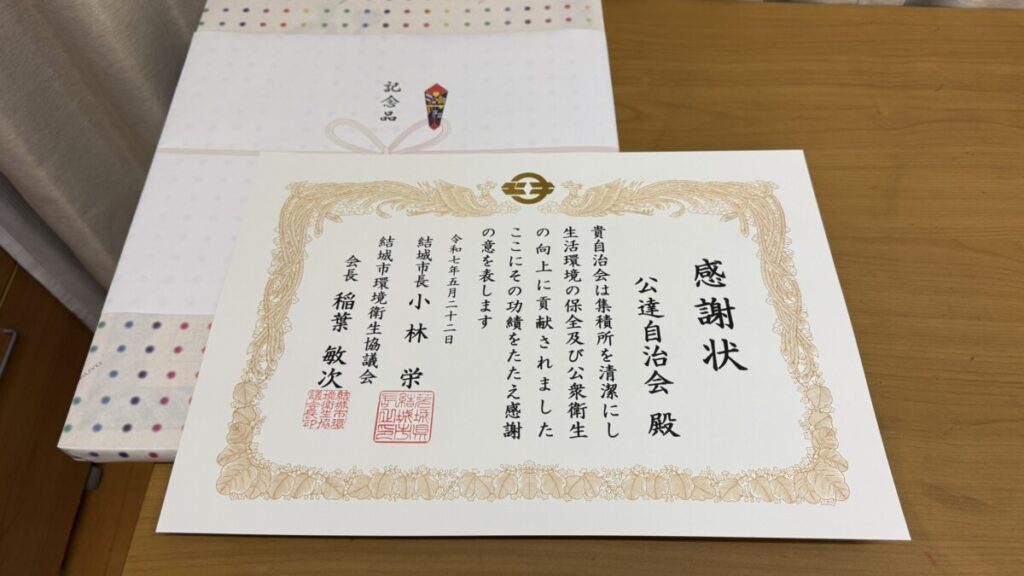 感謝状
公達自治会 殿
貴自治会は集積所を清潔にし
生活環境の保全及び公衆衛生
の向上に貢献されました
ここにその功績をたたえ感謝
の意を表します
令和七年五月二十二日
結城市長 小林 栄
結城市環境衛生協議会
会長 稲葉 敏次
茨城県
結城市
長之印
結城市環
境衛生協
議会長印
記念品